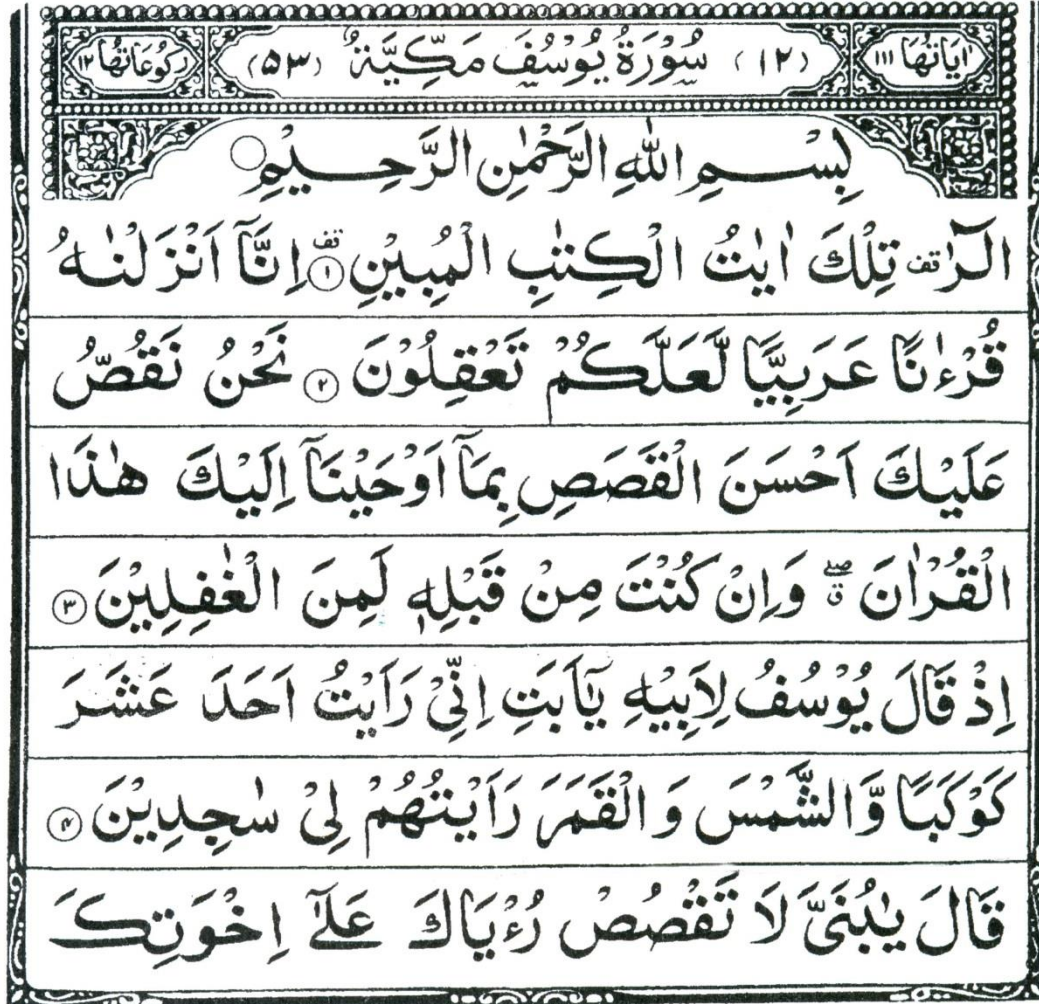 اٰيَاتُهَا ١١١ (١٢) سُوْرَةُ يُوْسُفَ مَكِّيَّةٌ (٥٣) رُكُوْعَاتُهَا ١٢
بِسْمِ اللّٰهِ الرَّحْمٰنِ الرَّحِيْمِ ○
الٓرٰ تف تِلْكَ اٰيٰتُ الْكِتٰبِ الْمُبِيْنِ تف ۝١ اِنَّآ اَنْزَلْنٰهُ
قُرْءٰنًا عَرَبِيًّا لَّعَلَّكُمْ تَعْقِلُوْنَ ۝٢ نَحْنُ نَقُصُّ
عَلَيْكَ اَحْسَنَ الْقَصَصِ بِمَآ اَوْحَيْنَآ اِلَيْكَ هٰذَا
الْقُرْاٰنَ ۖ ق وَاِنْ كُنْتَ مِنْ قَبْلِهٖ لَمِنَ الْغٰفِلِيْنَ ۝٣
اِذْ قَالَ يُوْسُفُ لِاَبِيْهِ يٰٓاَبَتِ اِنِّيْ رَاَيْتُ اَحَدَ عَشَرَ
كَوْكَبًا وَّالشَّمْسَ وَالْقَمَرَ رَاَيْتُهُمْ لِيْ سٰجِدِيْنَ ۝٤
قَالَ يٰبُنَيَّ لَا تَقْصُصْ رُءْيَاكَ عَلٰٓى اِخْوَتِكَ